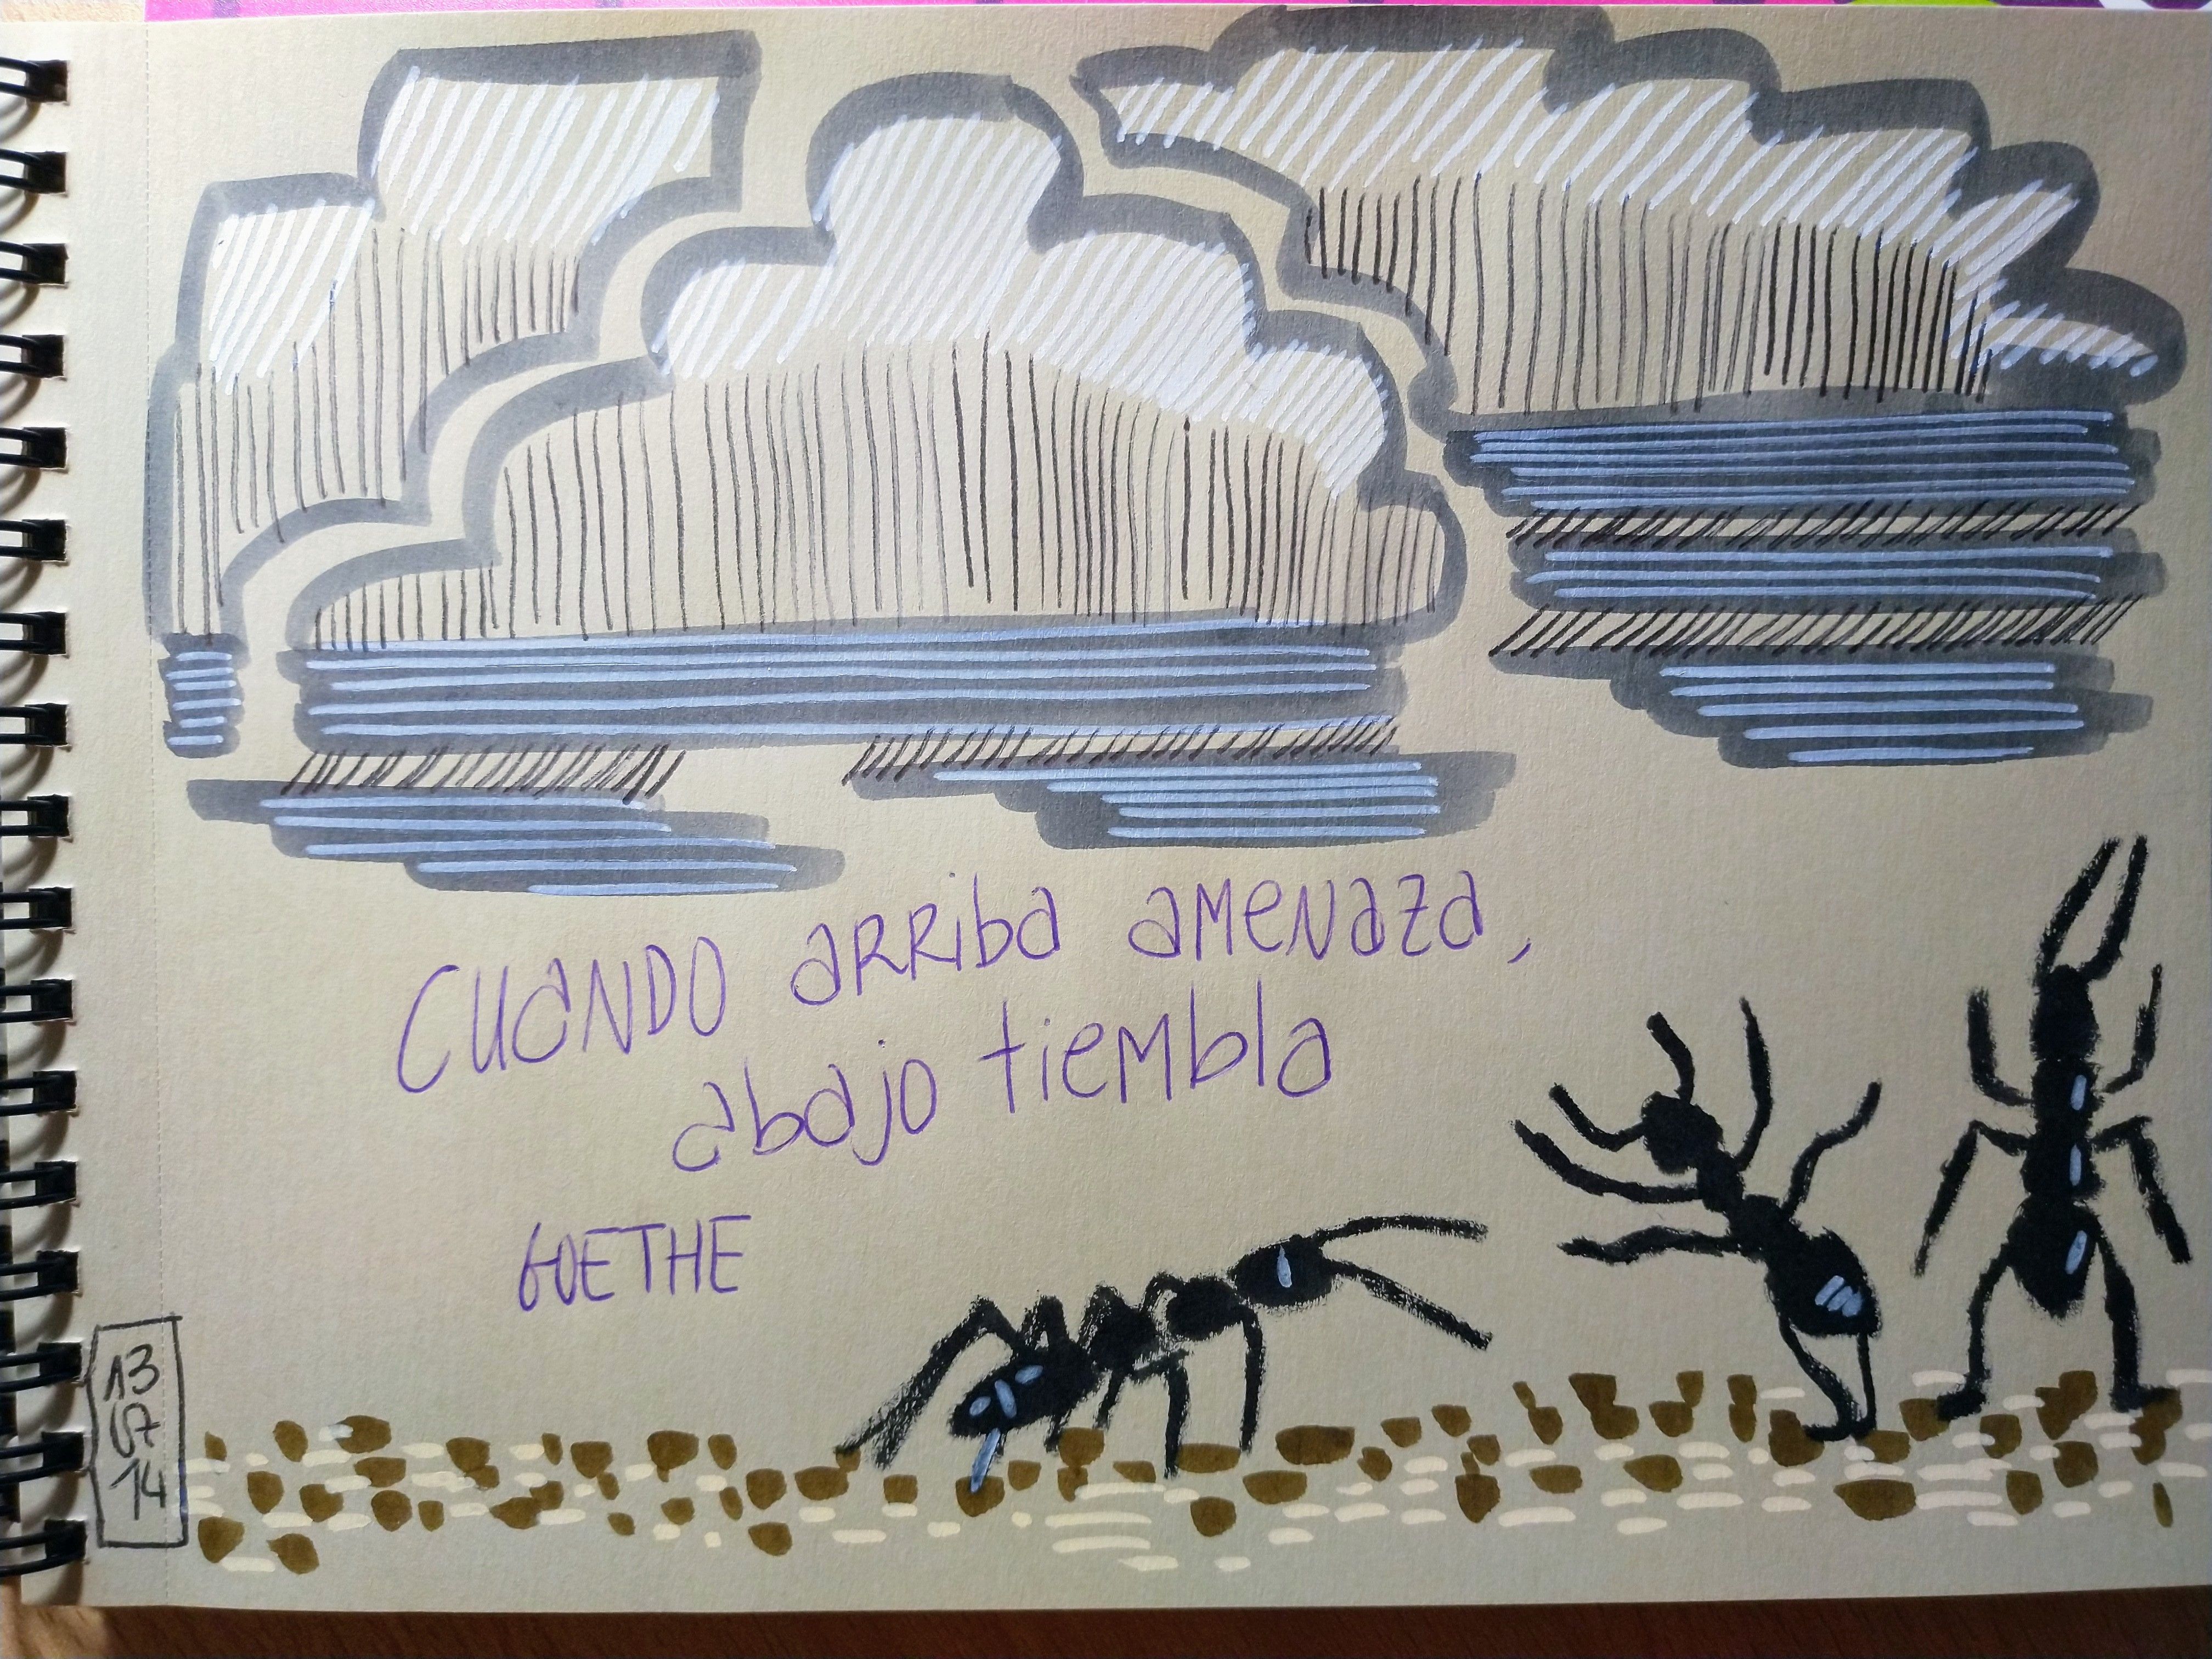 CUANDO arriba amenaza,
abajo tiembla
GOETHE
13
07
14